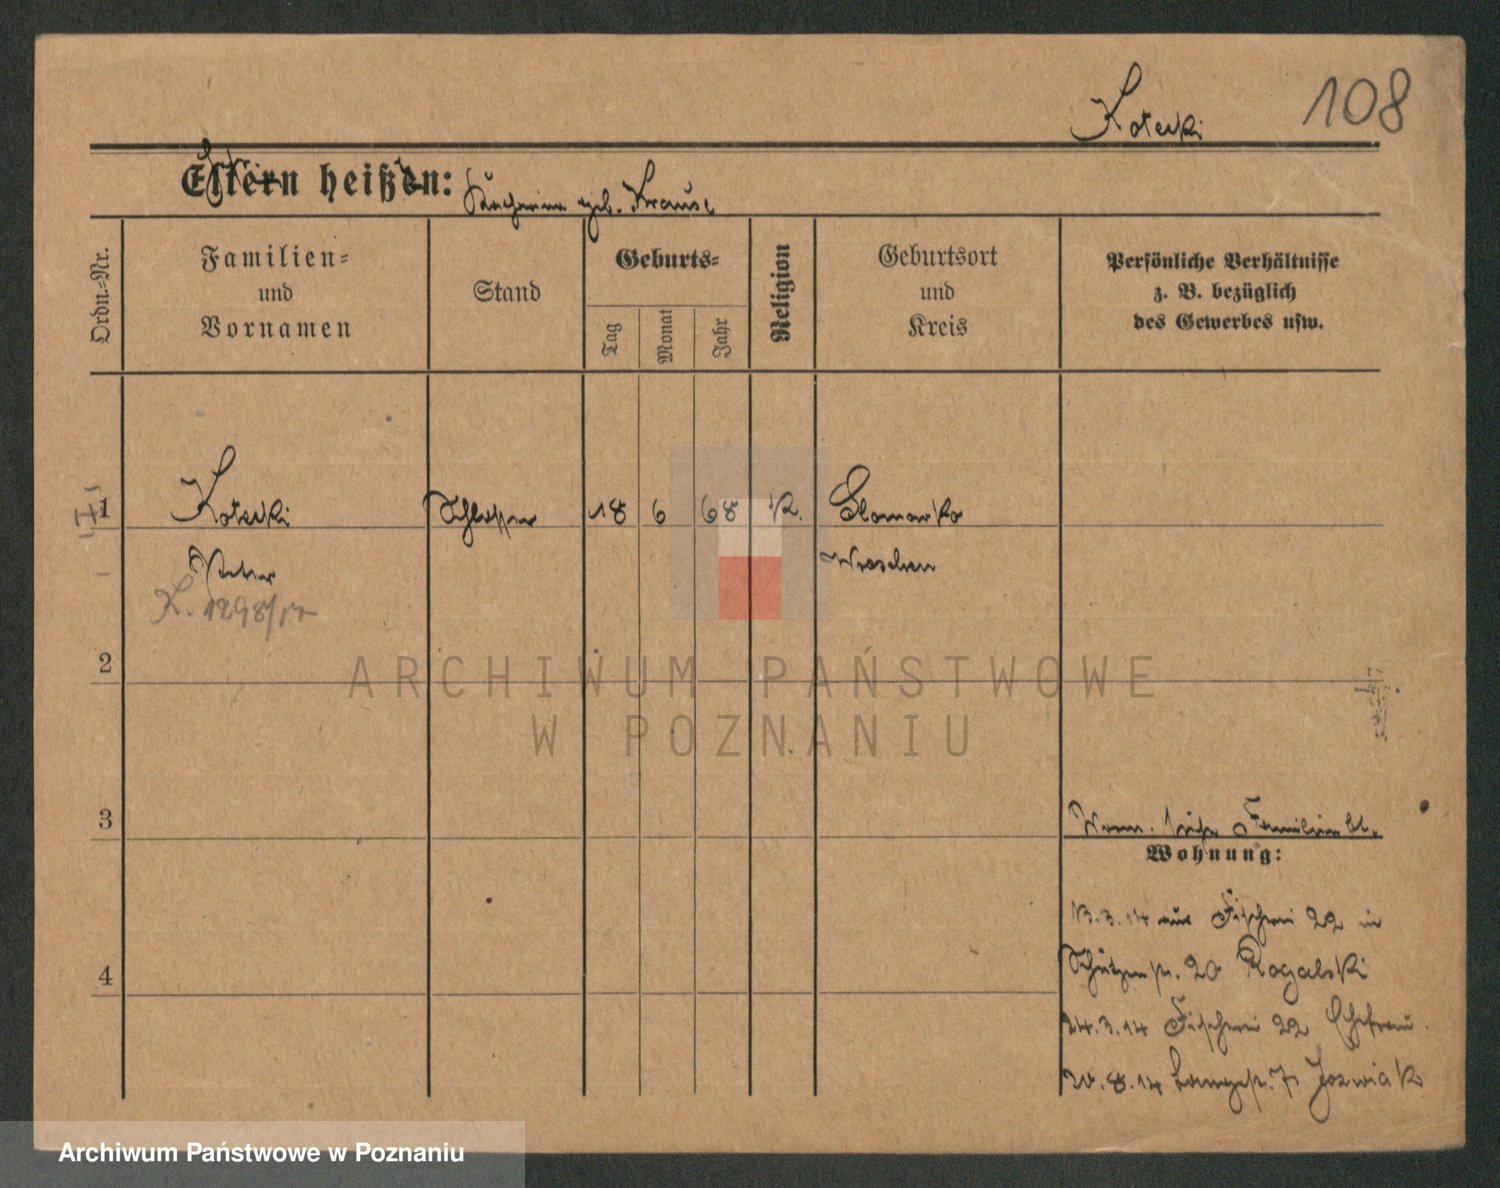 108
Kotecki
Eltern heißen:
Katharina geb. Krause
Ordn.-Nr.
Familien-
und
Vornamen
Stand
Geburts-
Tag
Monat
Jahr
Religion
Geburtsort
und
Kreis
Persönliche Verhältnisse
z. B. bezüglich
des Gewerbes usw.
1
Kotecki Schlosser 18 6 68 K.
Peter
Wreschen
2
ARCHIWUM PAŃSTWOWE
W POZNANIU
3
siehe Familienbl.
Wohnung:
13.3.14 aus Fischerei 22 in
4
Schützenstr. 20 Rogalski
24.3.14 Fischerei 22 Ehefrau
20.8.14 Langestr. 7 Jozwiak
Archiwum Państwowe w Poznaniu